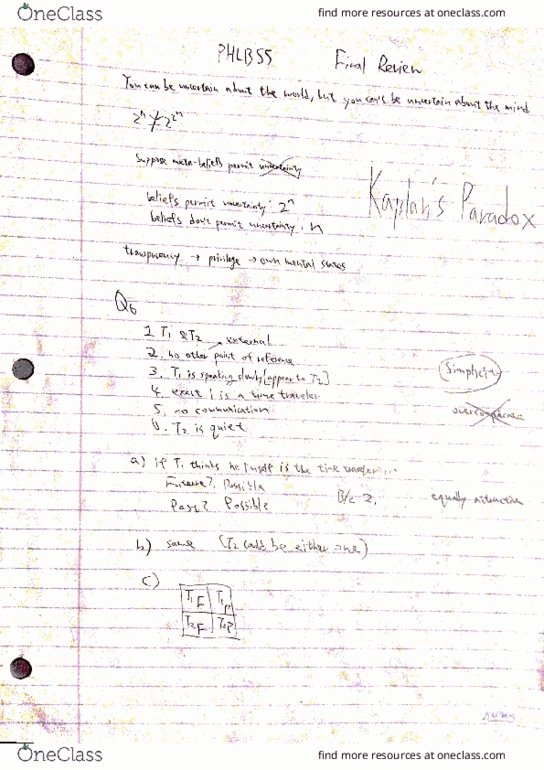 OneClass
find more resources at oneclass.com
PHLB55 Final Review
You can be uncertain about the world, but you can't be uncertain about the mind
Suppose meta-beliefs permit uncertainty
Kaplan's Paradox
beliefs permit uncertainty: 2ⁿ
beliefs don't permit uncertainty: n
transparency → privilege → own mental states
Q6
1. T₁ & T₂ → external
2. no other point of reference
3. T₁ is speaking slowly [appear to T₂]
Simplicity
4. exact 1 is a time traveler
5. no communication
6. T₂ is quiet
a) if T₁ thinks he himself is the time traveler...
Future? Possible
B/c 2. equally attractive
Past? Possible
b) same (T₂ could be either one)
c)
T₁F T₁P
T₂F T₂P
OneClass
find more resources at oneclass.com